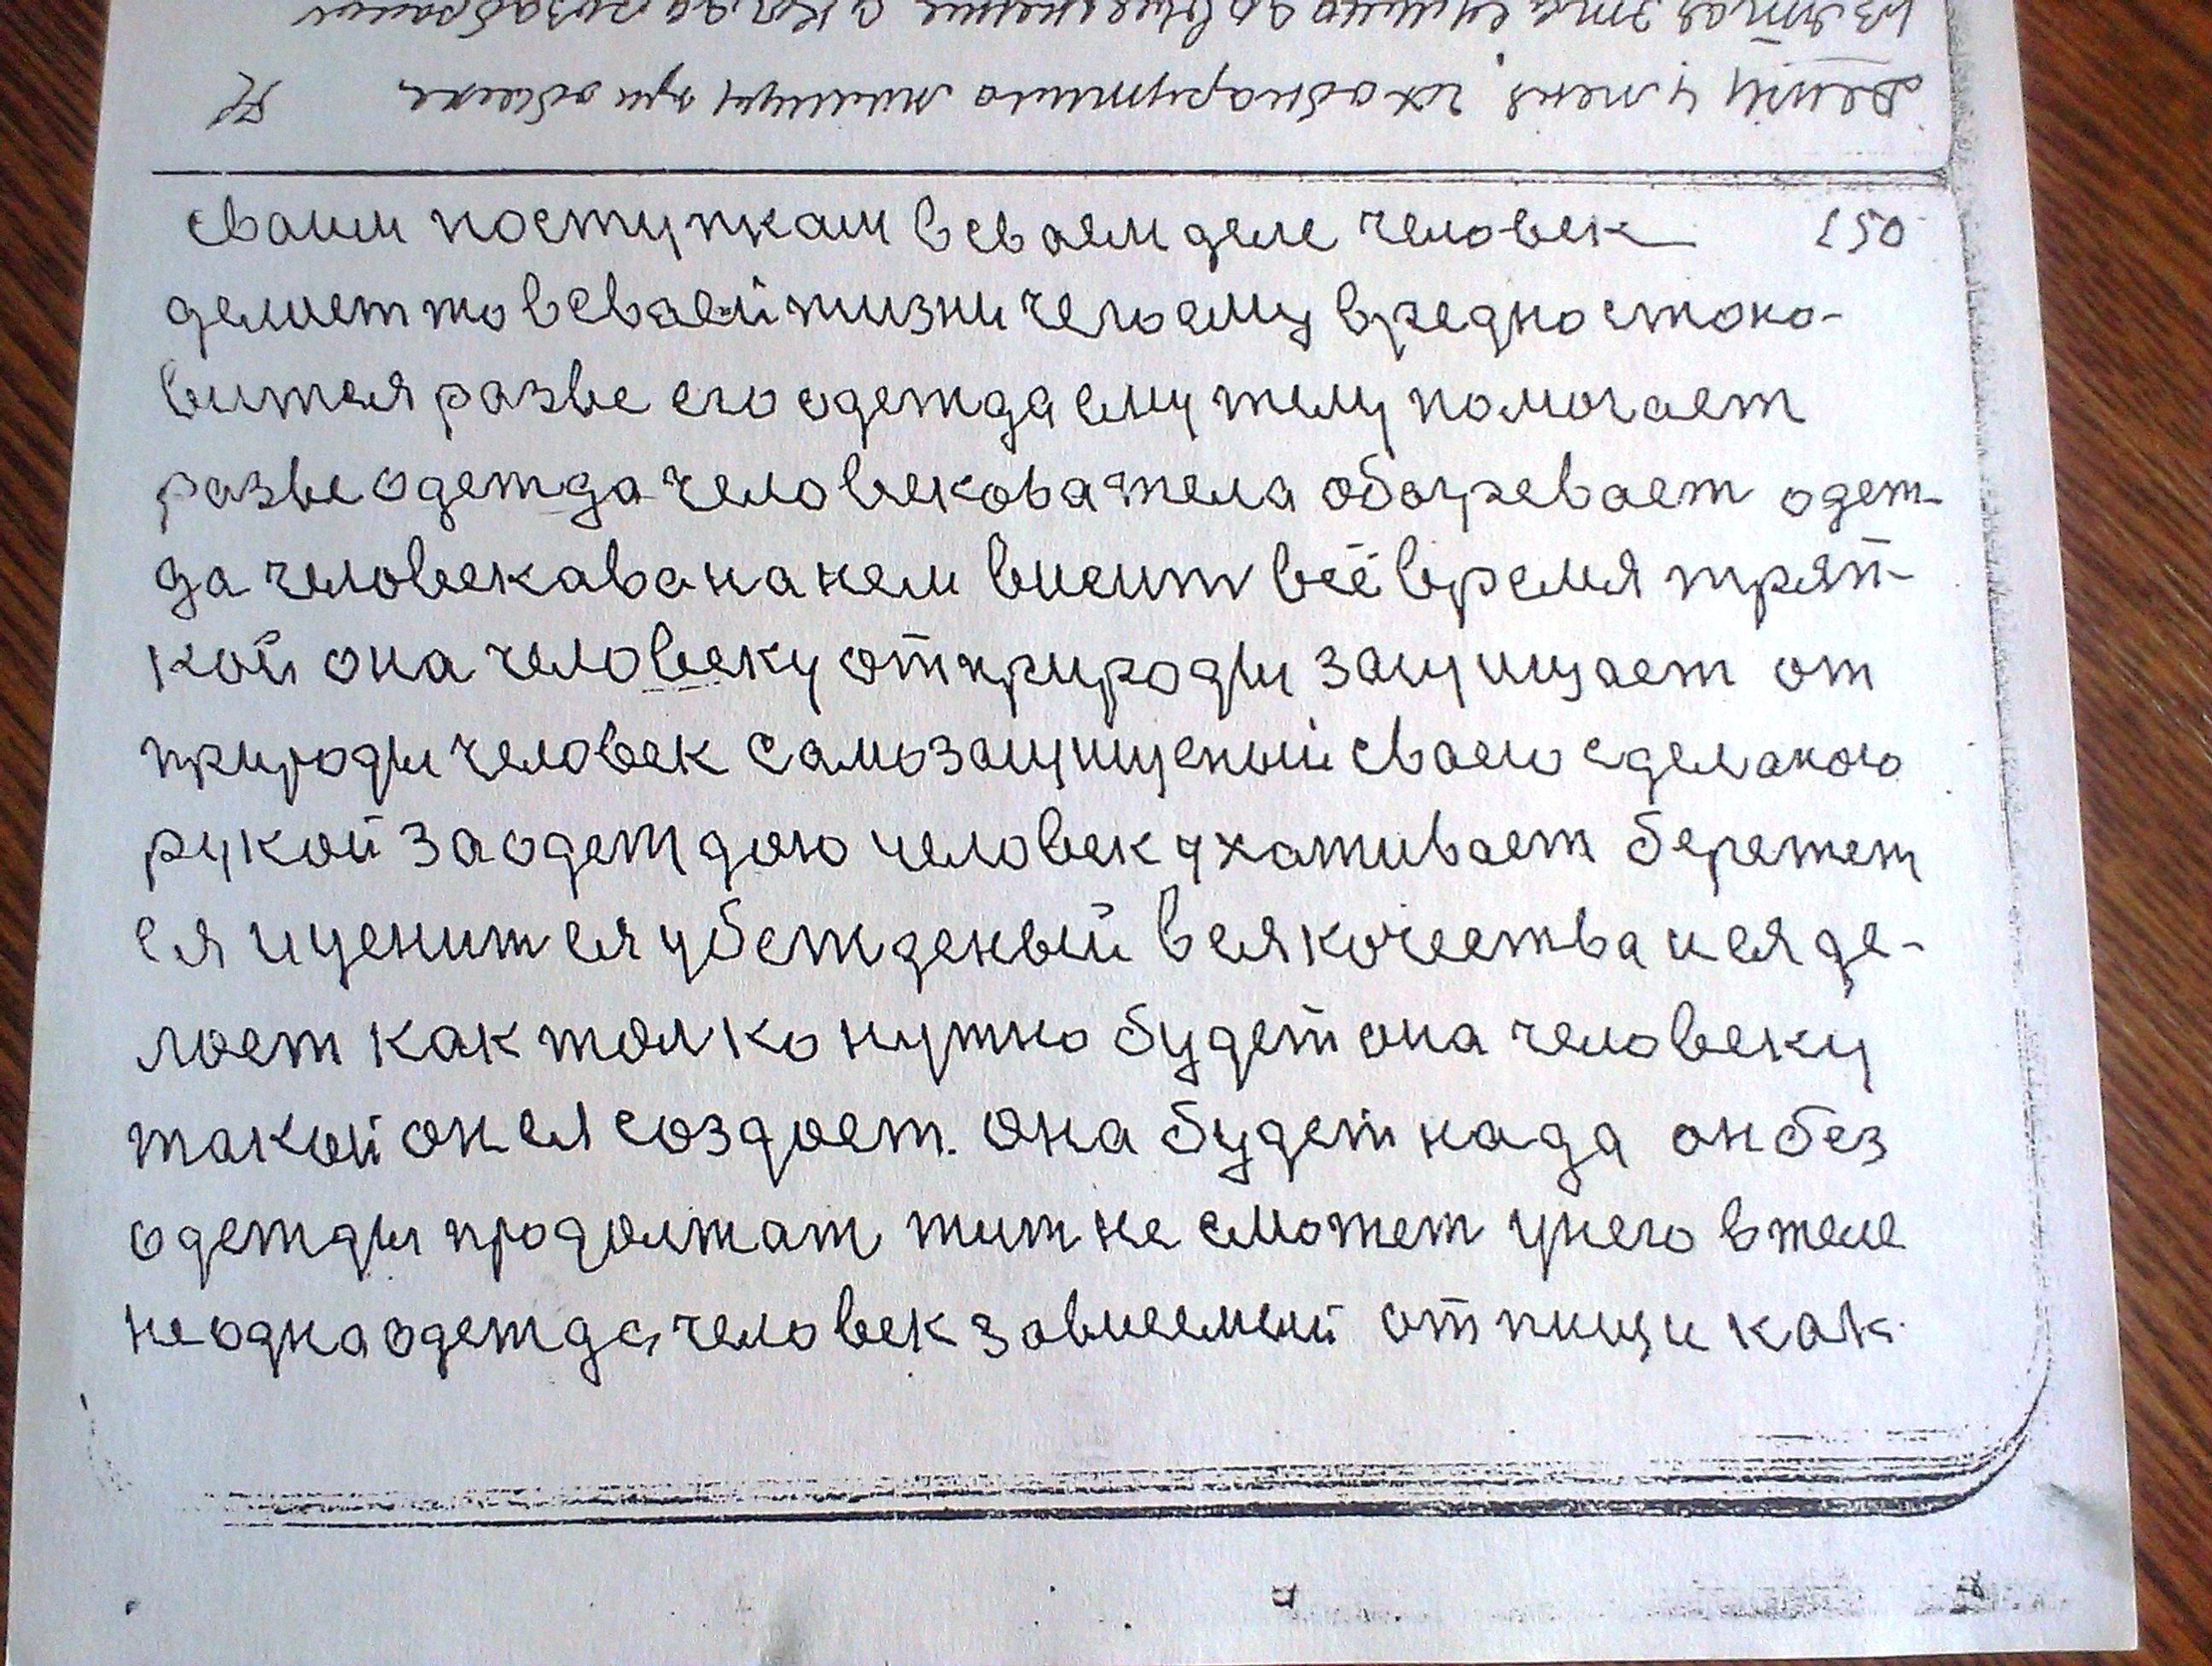 своим поступкам в сваем деле человек 150
делает то в сваей жизни чего ему вредно стоно-
витея разве его одежда ему телу помогает
разве одежда человекова тела обогревает одеж-
да человекава на нем висит всё время тряп-
кой она человеку от природы защищает от
природы человек самозащищеный сваею сделаною
рукой за одеждою человек ухаживает бережет
ея и ценит ея убежденый в ея кочества и ея де-
лоет как толко нужно будет она человеку
такой он ея создоет. Она будет када он без
одежды продолжат жит не сможет у него в теле
не одна одежда человек зависемый от пищи как